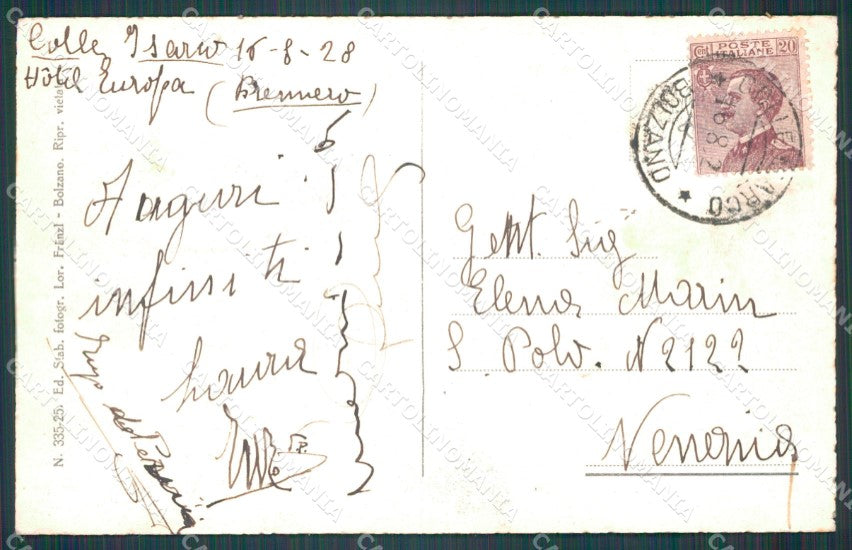 Colle Isarco 16-8-28
Hôtel Europa (Brennero)
Auguri
infiniti
Laura
N. 335-25. Ed. Stab. fotogr. Lor. Fränzl - Bolzano. Ripr. vietata
POSTE ITALIANE
Cent 20
COLLE ISARCO
BOLZANO
16.8.2
Gent. Sig
Elena Marin
S. Polo. N 2122
Venezia
CARTOLINOMANIA